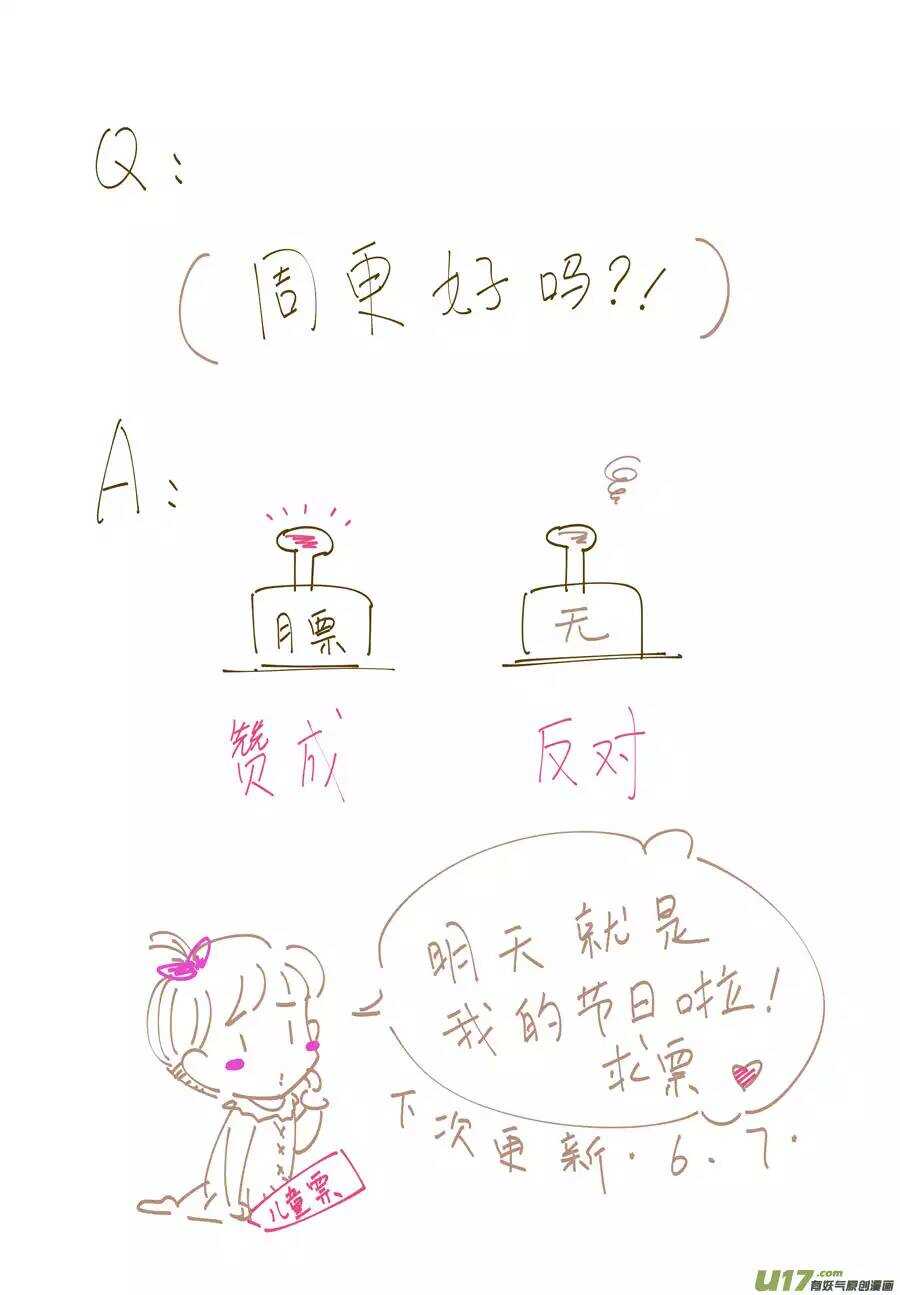 Q:
(周更好吗?!)
A:
月票
无
赞成
反对
明天就是
我的节日啦!
求票
下次更新.6.7.
儿童票
U17.com
有妖气原创漫画